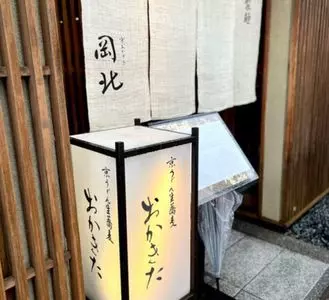 岡北
京うどん生蕎麦
おかきた
京うどん生蕎麦
おかきた